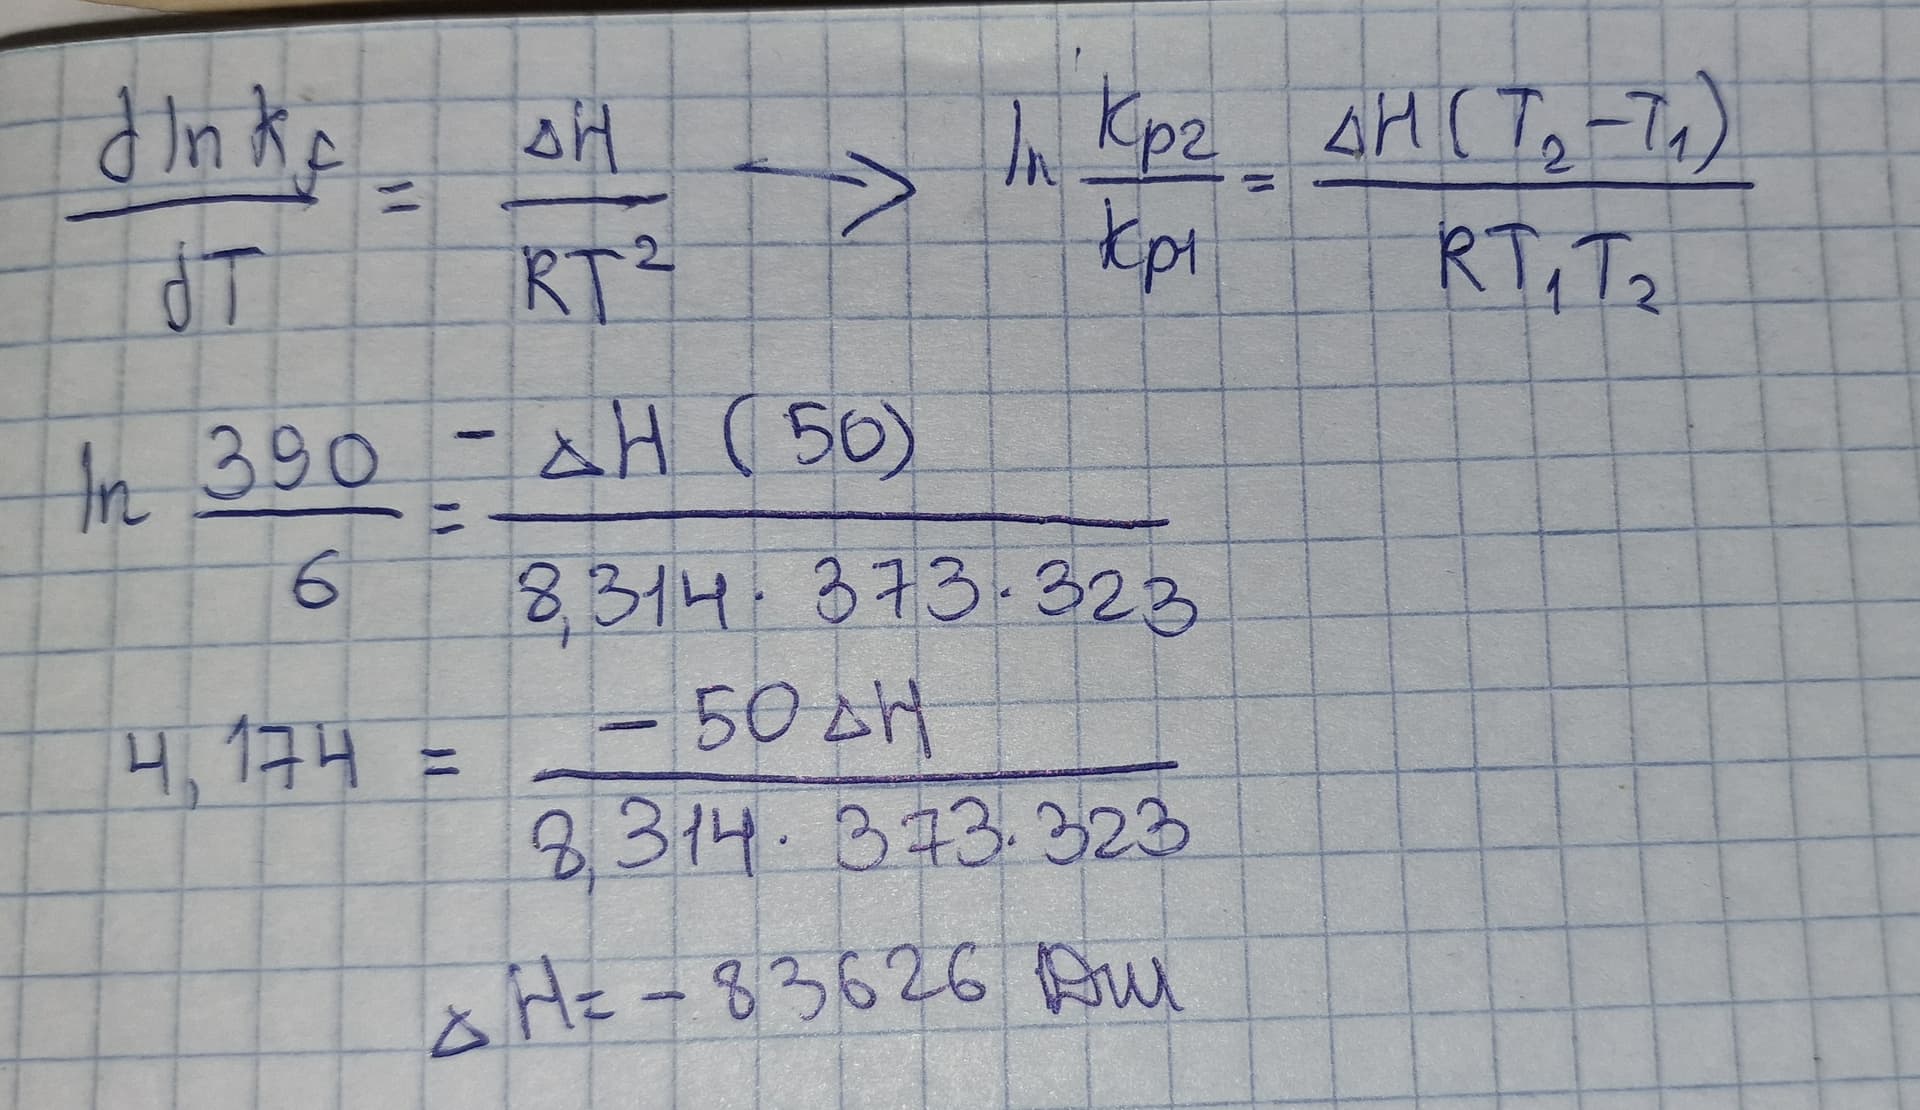 d ln Kc / dT = ΔH / RT² → ln Kp2 / Kp1 = ΔH (T₂ - T₁) / RT₁T₂
ln 390 / 6 = - ΔH (50) / 8,314 · 373 · 323
4,174 = - 50 ΔH / 8,314 · 373 · 323
ΔH = - 83626 Дж